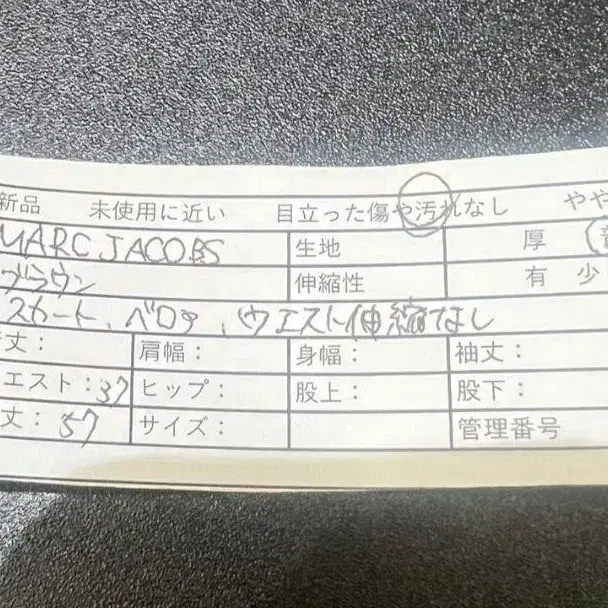 新品 未使用に近い 目立った傷や汚れなし やや
MARC JACOBS 生地 厚 普
ブラウン 伸縮性 有 少
スカート、ベロア、ウエスト伸縮なし
丈： 肩幅： 身幅： 袖丈：
エスト：37 ヒップ： 股上： 股下：
丈：57 サイズ： 管理番号